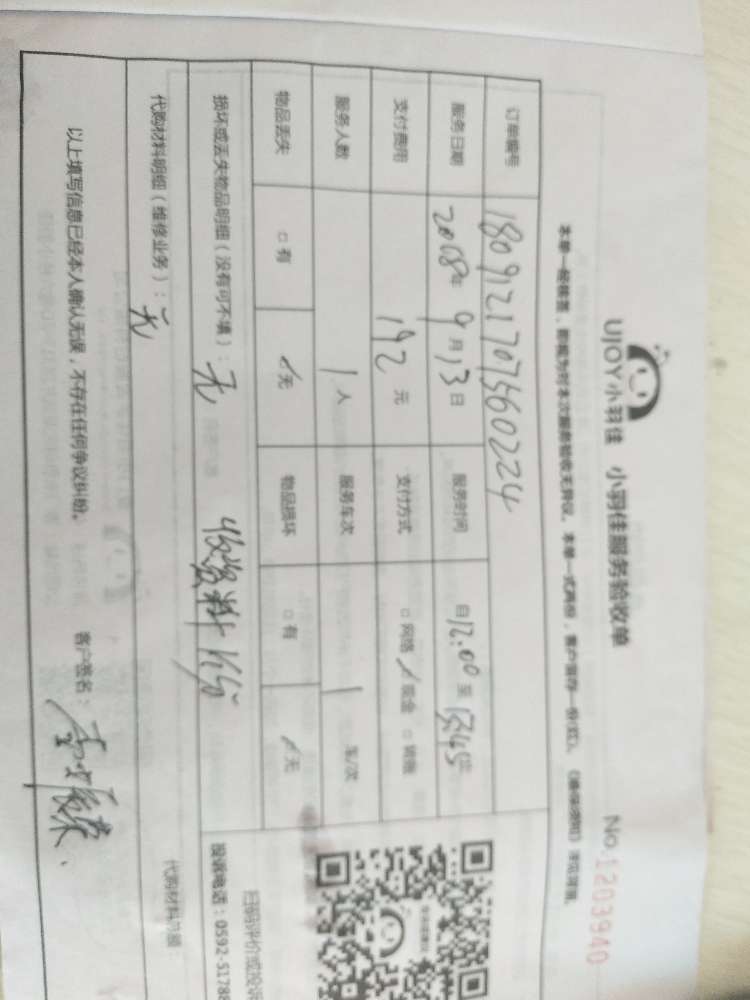 UJOY小羽佳 小羽佳服务验收单
No.1203940
本单一经签置，即视为对本次服务验收无异议。本单一式两份，客户留存一份(红)。
订单编号 18091217075560224
服务日期 2008年9月13日 服务时间 自12:00至13:45止
支付费用 192元 支付方式 □网络 ✓现金 □转账
服务人数 1人 服务车次 1 车/次
物品丢失 □有 ✓无 物品损坏 □有 ✓无
损坏或丢失物品明细（没有可不填）：无
收资料
代购材料明细（维修业务）：无
代购材料总额：
以上填写信息已经本人确认无误，不存在任何争议纠纷。 客户签名：
扫码评价或投诉
投诉电话：0592-51788